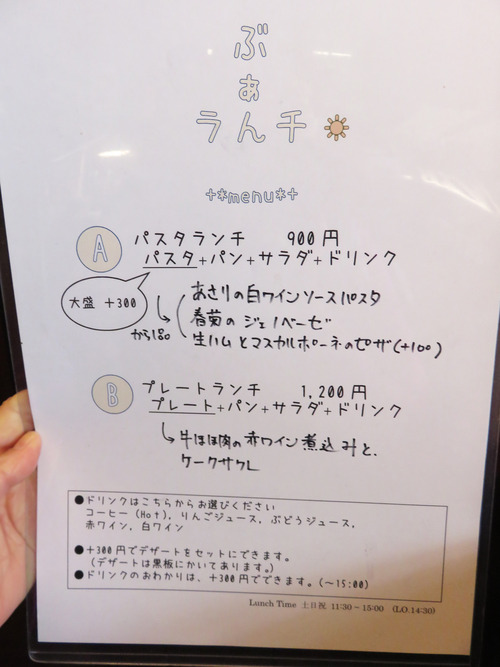 ぶ
ぁ
らん千
+*menu*+
A パスタランチ 900円
パスタ+パン+サラダ+ドリンク
大盛 +300
あさりの白ワインソースパスタ
春菊のジェノベーゼ
から1品
生ハムとマスカルポーネのピザ(+100)
B プレートランチ 1,200円
プレート+パン+サラダ+ドリンク
牛ほほ肉の赤ワイン煮込みと、
ケークサクレ
●ドリンクはこちらからお選びください
コーヒー(Hot)，りんごジュース，ぶどうジュース，
赤ワイン，白ワイン
●+300円でデザートをセットにできます。
(デザートは黒板にかいてあります。)
●ドリンクのおかわりは、+300円でできます。(～15:00)
Lunch Time 土日祝 11:30～15:00 (LO.14:30)